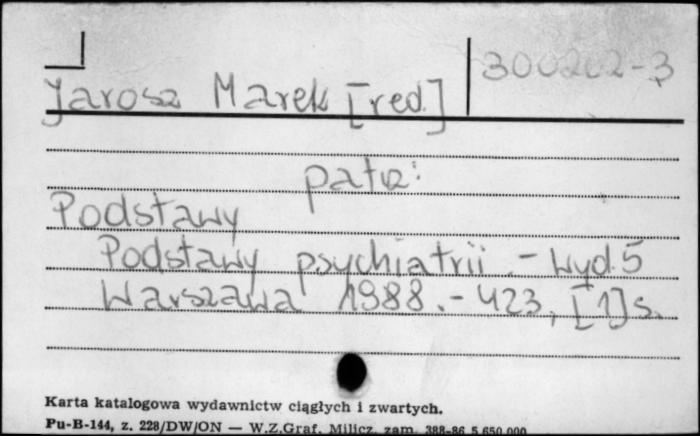 300202-3
Jarosz Marek [red.]
patrz:
Podstawy
Podstawy psychiatrii .- Wyd. 5
Warszawa 1988 .- 423, [1] s.
Karta katalogowa wydawnictw ciągłych i zwartych.
Pu-B-144, z. 228/DW/ON — W.Z.Graf. Milicz, zam. 388-86 5.650.000